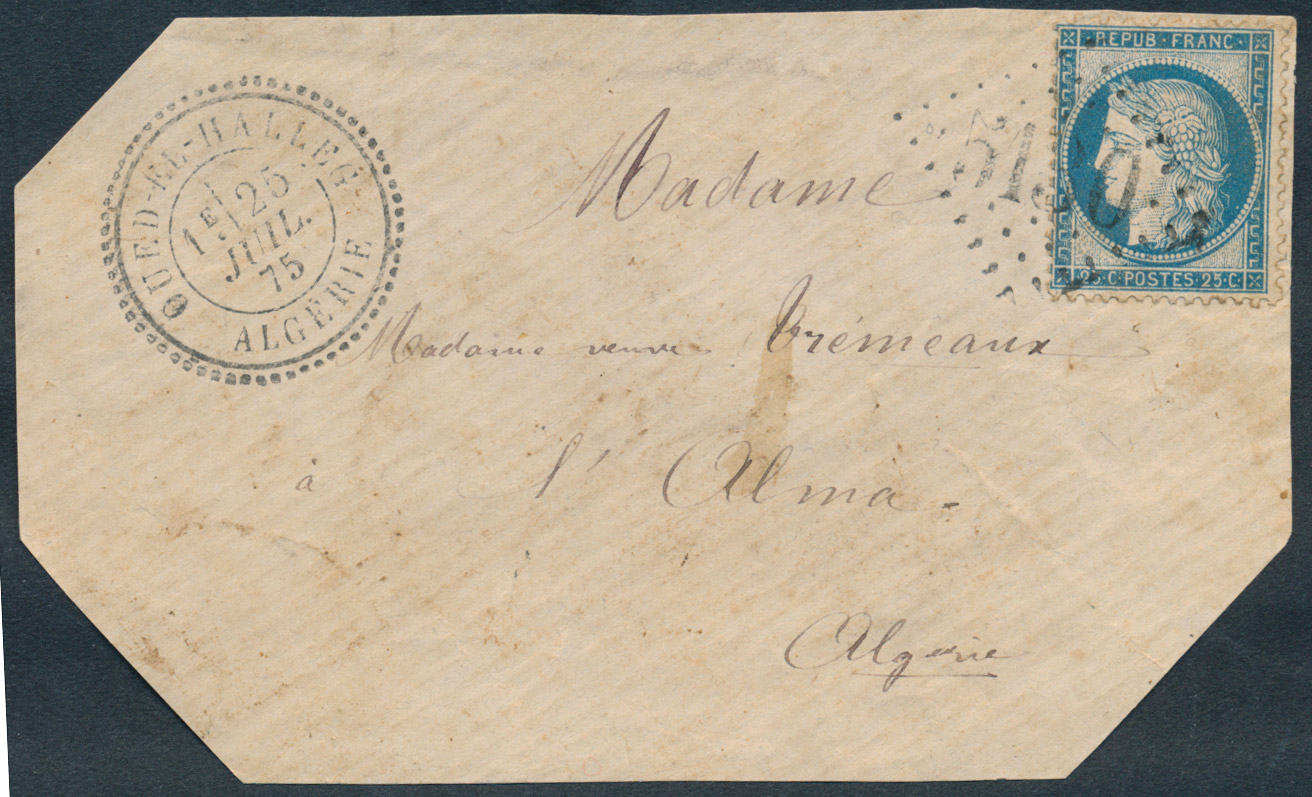 OUED-EL-HALLEG
1E 25
JUIL.
75
ALGÉRIE
REPUB·FRANC·
25·C·POSTES·25·C
Madame
Madame veuve Trémeaux
à l'Alma
Algérie